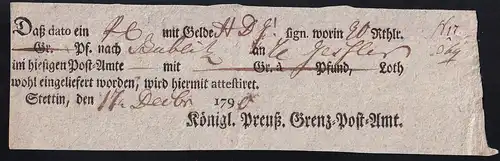 Daß dato ein mit Gelde H D G! sign. worin 90 Rthlr. N 17.
Gr. Pf. nach an
im hiesigen Post-Amte mit Gr. à Pfund, Loth
wohl eingeliefert worden, wird hiermit attestiret.
Stettin, den 17 Decbr 1790
Königl. Preuß. Grenz-Post-Amt.